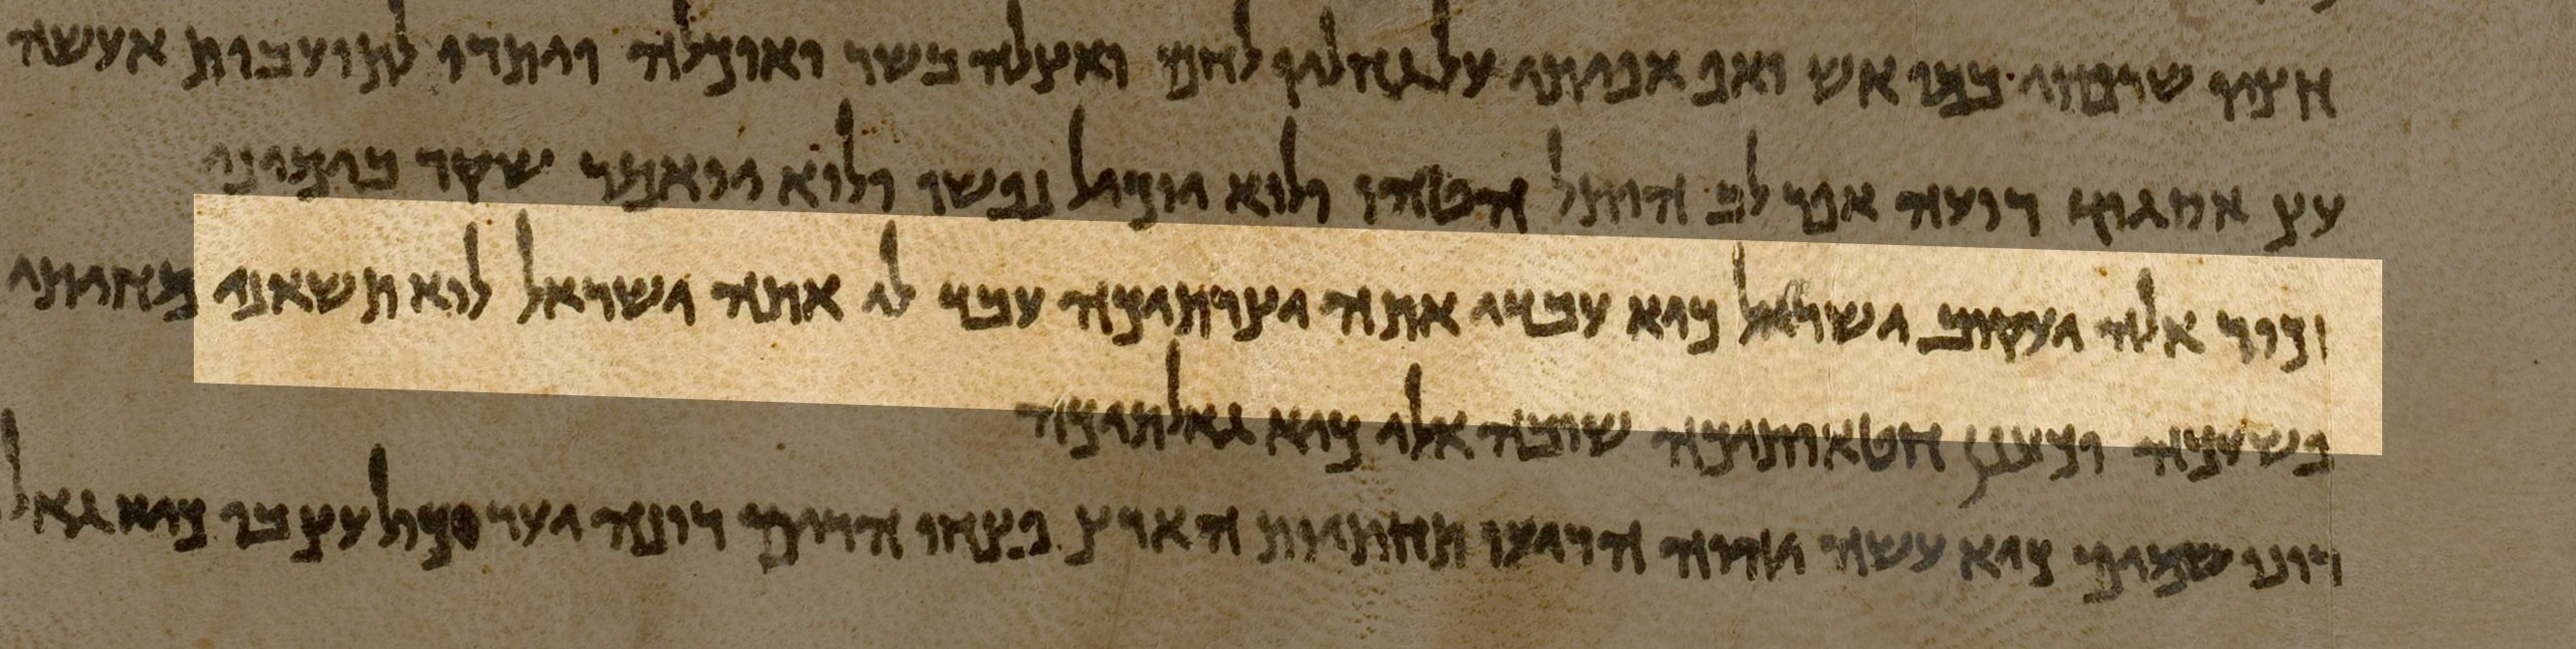 חציו שרפתי במו אש ואפ אפיתי על גחליו לחמ ואצלה בשר ואוכלה ויתרו לתועבות אעשה
עץ אסגוד רועה אפר לב הותל הטהו ולוא יוכיל נפשו ולוא יואמר שקר בימיני
זכור אלה יעקוב ישראל כיא עבדי אתה יצרתיכה עבד לי אתה ישראל לוא תשאני מחיתי
פשעכה וכענן חטאותיכה שובה אלי כיא גאלתיכה
רונו שמים כיא עשה יהוה הריעו תחתיות הארץ פצחו הרים רונה יער וכול עץ בו כיא גאל